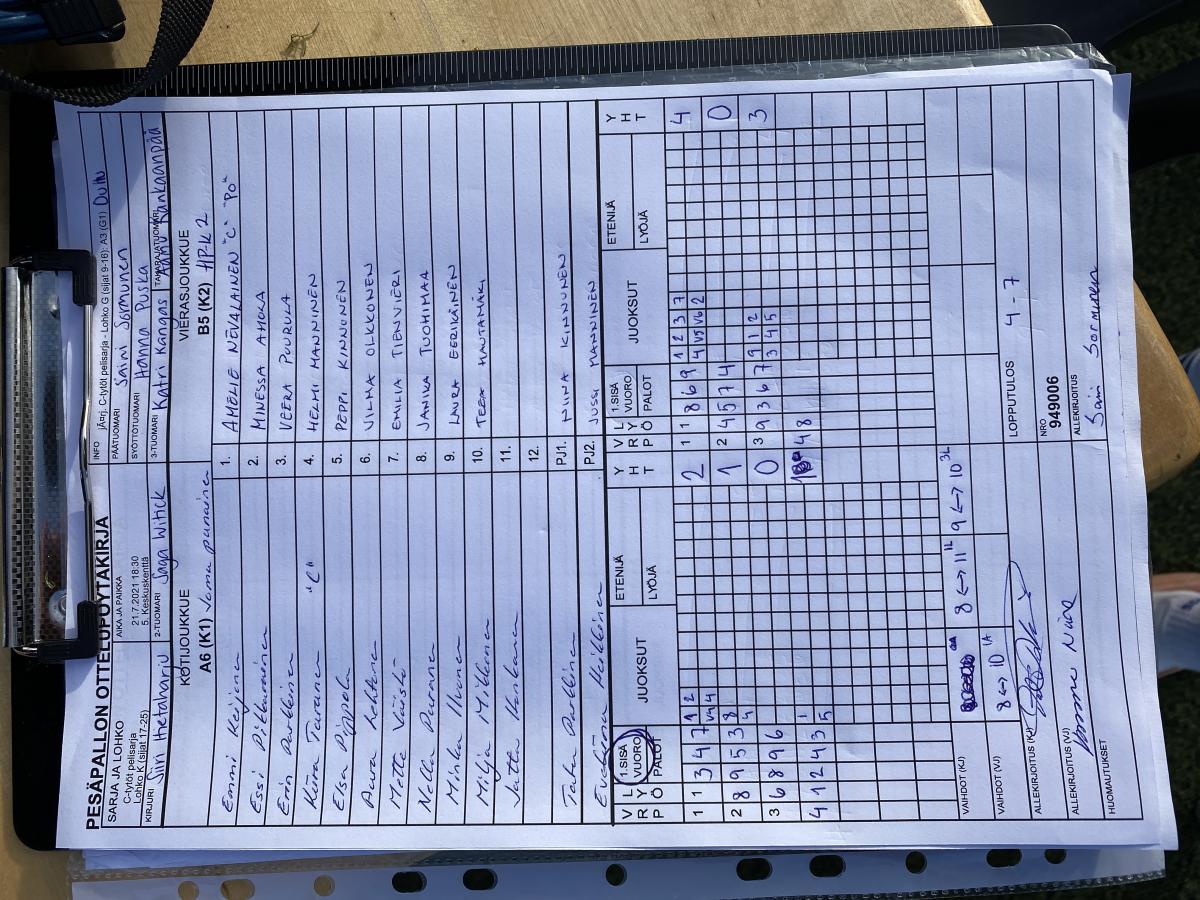 PESÄPALLON OTTELUPÖYTÄKIRJA
SARJA JA LOHKO
C-tytöt pelisarja
Lohko K (sijat 17-25)
AIKA JA PAIKKA
21.7.2021 18:30
5. Keskuskenttä
INFO JÄ¤rj. C-tytöt pelisarja - Lohko G (sijat 9-16): A3 (G1)
PÄÄTUOMARI Saini Sormunen
SYÖTTÖTUOMARI Hanna Puska
KIRJURI Siiri Hietaharju 2-TUOMARI Saga Witick 3-TUOMARI Katri Kangas TAKARAJATUOMARI Kankaanpää
KOTIJOUKKUE
A6 (K1) Jama punainen
VIERASJOUKKUE
B5 (K2) HP-K2
Emmi 1. AMELIE NEVALAINEN "C" "PO"
Essi 2. MINESSA AHOLA
Erin Parkkinen 3. VEERA PUURULA
Kiira Turunen "C" 4. HELMI MANNINEN
Elsa Pippola 5. PEPPI KINNUNEN
Aura Lehtonen 6. VILMA OLKKONEN
7. EMILIA TIENVIERI
Nella Puranen 8. JANIKA TUOHIMAA
Minka Ikonen 9. LAURA EERIKÄINEN
Milja Mikkonen 10. TEEA HAUTAMÄKI
11.
12.
Parkkinen PJ1. NIINA KINNUNEN
Heikkinen PJ2. JUSSI MANNINEN
VRP LYÖ 1.SISÄ VUORO PALOT JUOKSUT ETENIJÄ LYÖJÄ YHT VRP LYÖ 1.SISÄ VUORO PALOT JUOKSUT ETENIJÄ LYÖJÄ YHT
1 1 3 4 7 1 2 2 1 1 8 6 9 1 2 3 7 4
V4 4 4 V5 V6 2
2 8 9 5 3 8 1 2 4 5 7 4 0
4
3 6 8 9 6 0 3 9 3 6 7 9 1 2 3
3 4 5
4 1 2 4 3 1 4 8
5
VAIHDOT (KJ) 8 <-> 11 1L 9 <-> 10 3L
VAIHDOT (VJ) 8 <-> 10 1A
ALLEKIRJOITUS (KJ)
LOPPUTULOS 4 - 7
ALLEKIRJOITUS (VJ)
NRO
949006
HUOMAUTUKSET
ALLEKIRJOITUS
Saini Sormunen